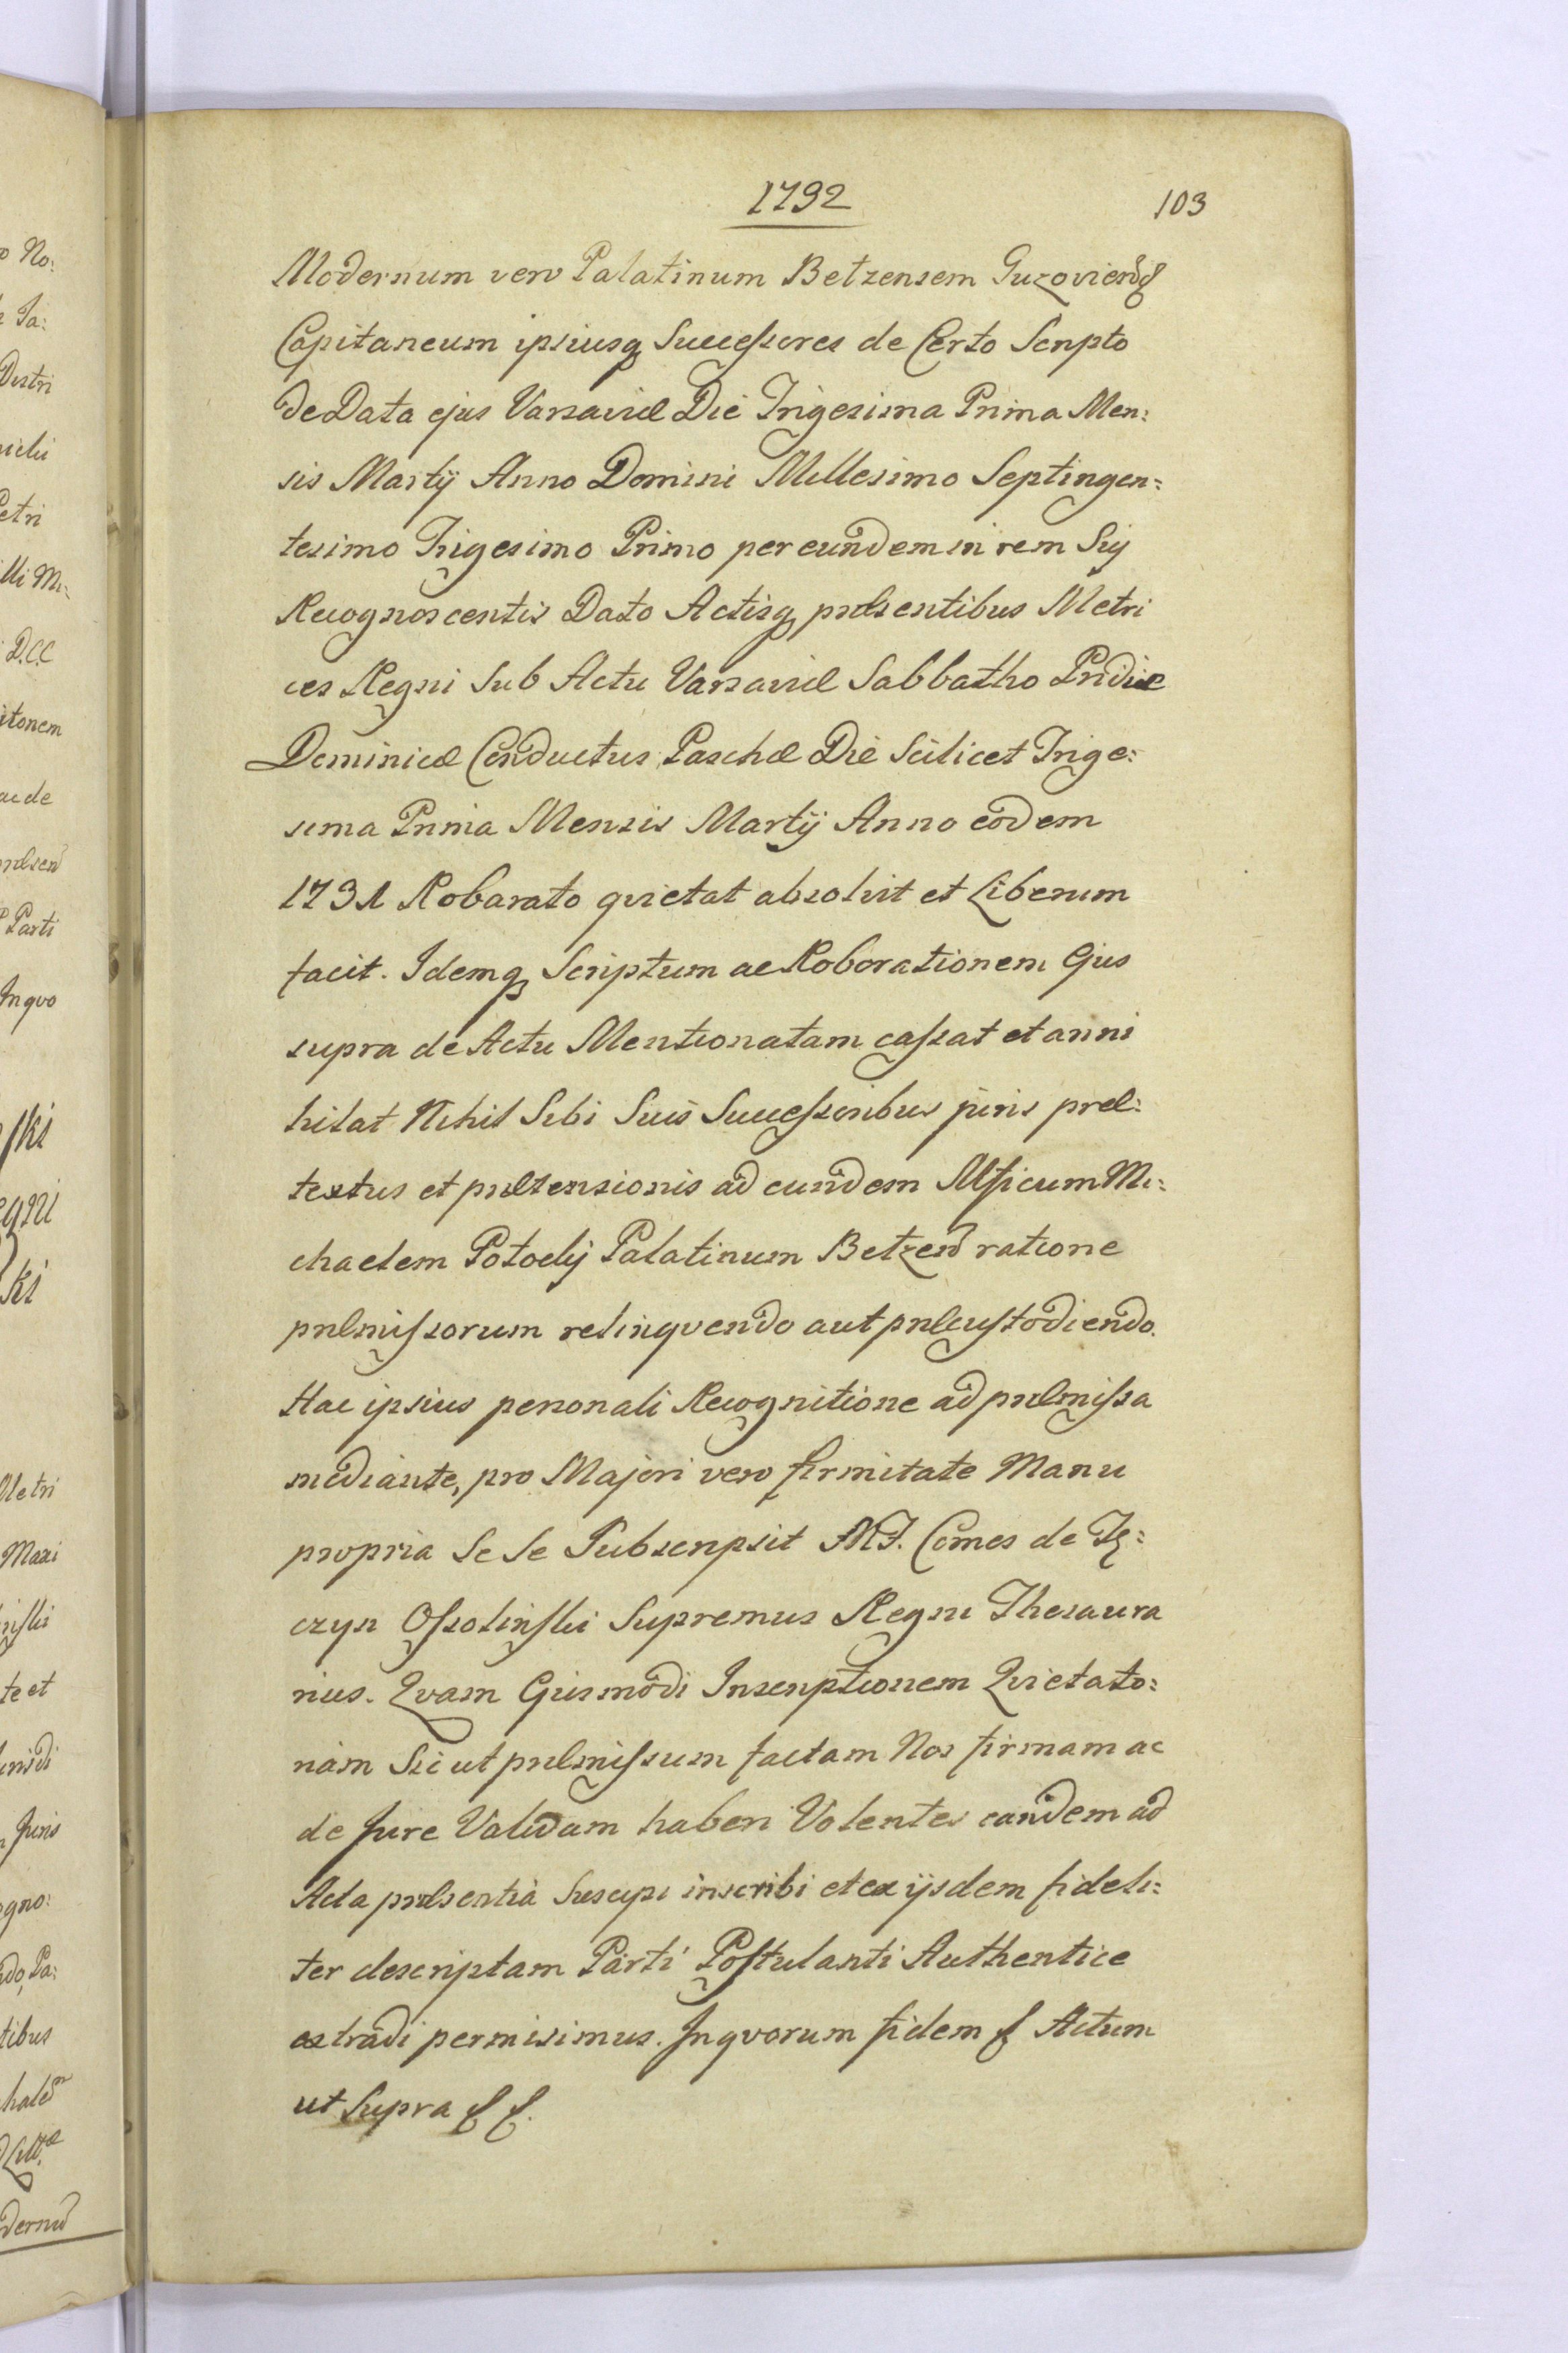 1792
103
Modernum vero Palatinum Betzensem Guzovien͠q
Capitaneum ipsiusq Successores de Certo Scripto
de Data ejus Varsaviæ Die Trigesima Prima Men:
sis Martÿ Anno Domini Millesimo Septingen:
tesimo Trigesimo Primo per eundem in rem Sui
Recognoscentis Dato Actisq præsentibus Metri
ces Regni Sub Actu Varsaviæ Sabbatho Pridie
Dominicæ Conductus Paschæ Die Scilicet Trige:
sima Prima Mensis Martÿ Anno eodem
1731 Robarato qvietat absolvit et Liberum
facit. Idemq Scriptum ac Roborationem Ejus
supra de Actu Mentionatam cassat et anni
hilat Nihil Sibi Suis Successoribus juris præ:
textus et prætensionis ad eundem Mficum Mi:
chaelem Potocky Palatinum Betzen͠ ratione
præmissorum relinqvendo aut præcustodiendo.
Hac ipsius personali Recognitione ad præmissa
mediante, pro Majori vero firmitate Manu
propria Se Se Subscripsit M F. Comes de Tę:
czyn Ossolinski Supremus Regni Thesaura
rius. Qvam Ejusmodi Inscriptionem Qvietato:
riam Sicut præmissum factam Nos firmam ac
de Jure Validam haberi Volentes eandem ad
Acta præsentia Suscipi inscribi et ex ijsdem fideli:
ter descriptam Parti Postulanti Authentice
extradi permisimus. In qvorum fidem ꝭ Actum
ut Supra ꝭ ꝭ.
No:
Ja:
Distri
Petri
D.C.C
ac de
Parti
In qvo
ski
ki
Metri
Maxi
te et
Juris
ogno:
tibus